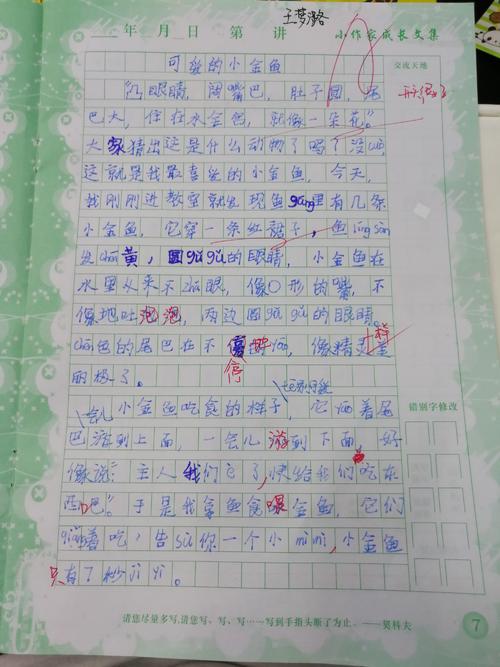 王梦洛
年 月 日 第 讲 小作家成长文集
可爱的小金鱼 交流天地
"凸眼睛,阔嘴巴,肚子圆,尾
巴大,住在水金色,就像一朵花。"
大家猜出这是什么动物了吗?没cuò,
这就是我最喜爱的小金鱼,今天,
我刚刚进教室就发现鱼gāng里有几条
小金鱼,它穿一条红裙子,鱼
黄,圆gǔ gǔ的眼睛,小金鱼在
水里从来不zhǎ眼,像O形的嘴,不
像地吐泡泡,两边圆gǔ gǔ的眼睛。
色的尾巴在不停 像精灵一样
丽极了。
小金鱼吃食的样子,它 着尾
巴游到上面,一会儿游到下面,好 错别字修改
像说:"主人我们 了,快给我们吃东
西吧"。于是我拿鱼食喂金鱼,它们
着吃,告sù你一个小mì mì,小金鱼
只有7秒jì yì。
请您尽量多写,请您写、写、写……写到手指头断了为止。——契科夫
7